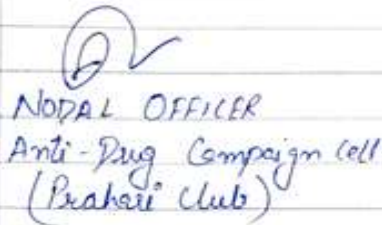 NODAL OFFICER
Anti-Drug Campaign Cell
(Prahari Club)